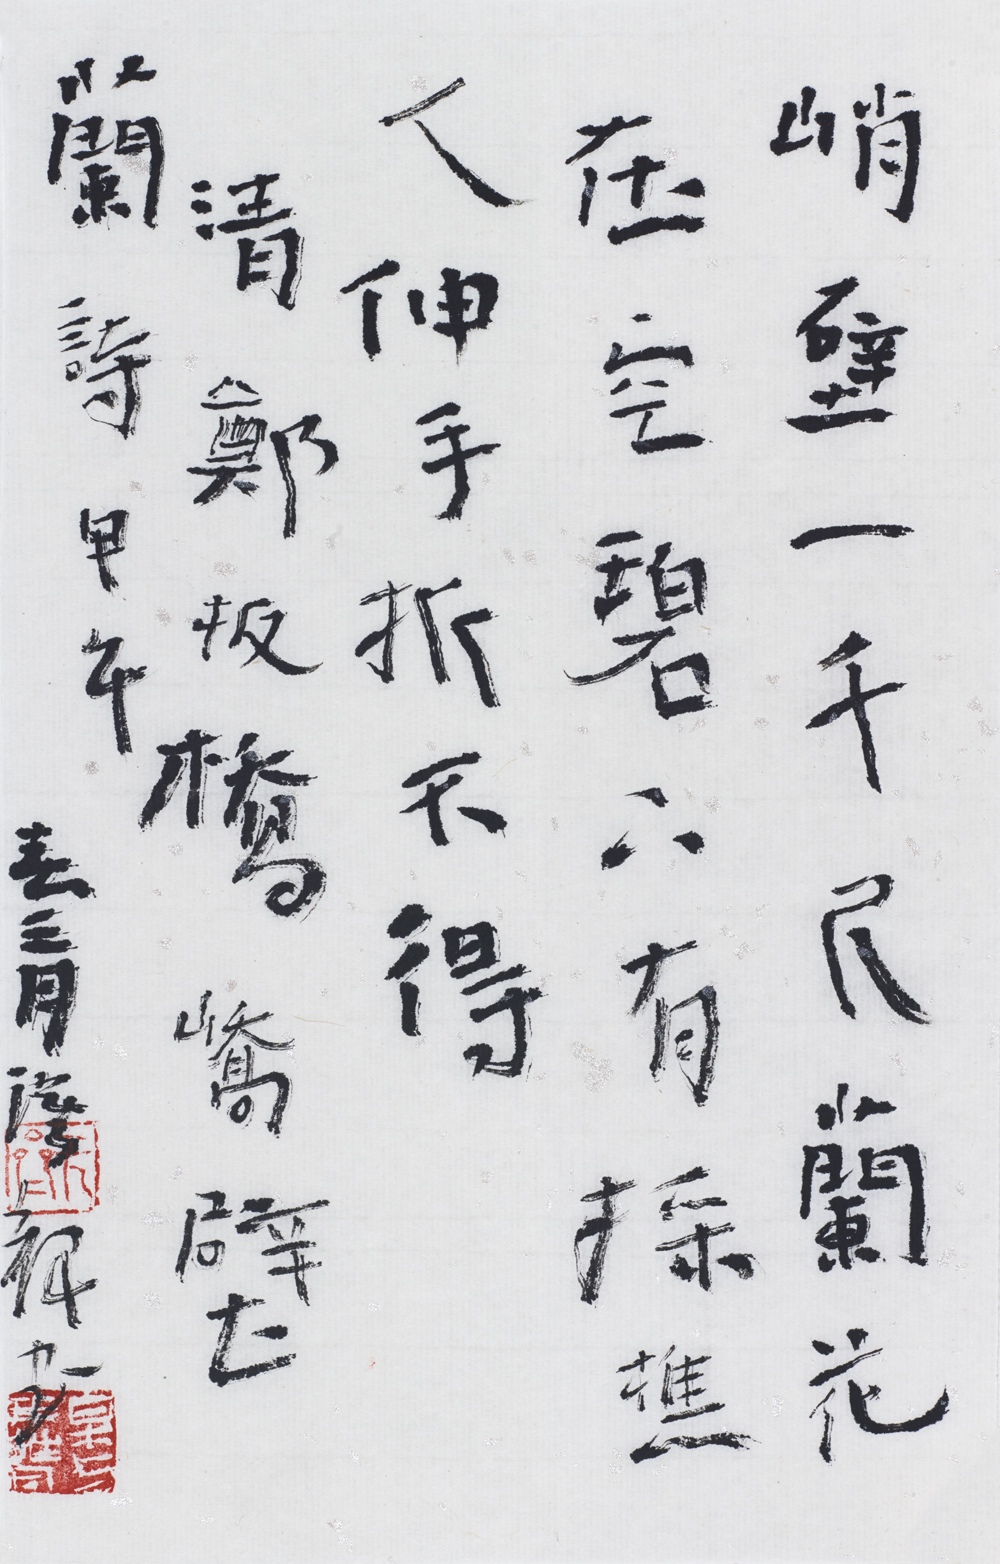 峭壁一千尺蘭花
在空碧下有採樵
人伸手折不得
清鄭板橋嶠壁
蘭詩甲午春三月祥书